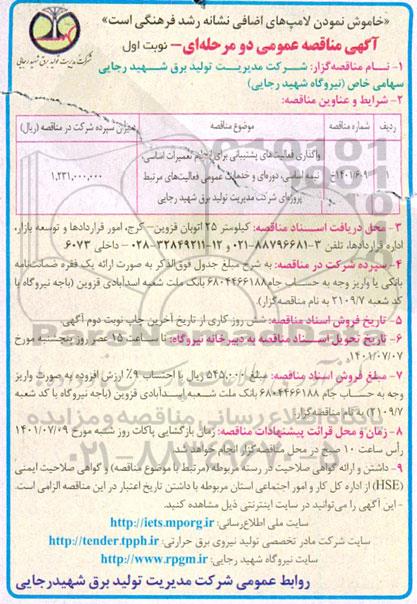 «خاموش نمودن لامپ‌های اضافی نشانه رشد فرهنگی است»
آگهی مناقصه عمومی دو مرحله‌ای – نوبت اول
شرکت مدیریت تولید برق شهید رجایی
۱- نام مناقصه‌گزار: شرکت مدیریت تولید برق شهید رجایی
سهامی خاص (نیروگاه شهید رجایی)
۲- شرایط و عناوین مناقصه:
ردیف شماره مناقصه موضوع مناقصه میزان سپرده شرکت در مناقصه (ریال)
واگذاری فعالیت‌های پشتیبانی برای انجام تعمیرات اساسی،
۱ ۱۴۰۱/۶۰۹خ نیمه اساسی، دوره‌ای و خدمات عمومی فعالیت‌های مرتبط ۱,۲۳۱,۰۰۰,۰۰۰
پروژه‌ای شرکت مدیریت تولید برق شهید رجایی
۳- محل دریافت اسناد مناقصه: کیلومتر ۲۵ اتوبان قزوین– کرج، امور قراردادها و توسعه بازار،
اداره قراردادها، تلفن ۳-۸۸۷۹۶۶۸۱-۰۲۱ و ۱۲-۳۲۸۴۹۲۱۱-۰۲۸ – داخلی ۶۰۷۳.
۴- سپرده شرکت در مناقصه: به شرح مبلغ جدول فوق‌الذکر به صورت ارائه یک فقره ضمانت‌نامه
بانکی یا واریز وجه به حساب جام ۶۸۰۴۴۶۶۱۸۸ بانک ملت شعبه اسدآبادی قزوین (باجه نیروگاه با
کد شعبه ۲۱۰۹/۷ به نام مناقصه‌گزار).
۵- تاریخ فروش اسناد مناقصه: شش روز کاری از تاریخ آخرین چاپ نوبت دوم آگهی.
۶- تاریخ تحویل اسناد مناقصه به دبیرخانه نیروگاه: تا ساعت ۱۵ عصر روز پنجشنبه مورخ
۱۴۰۱/۰۷/۰۷
۷- مبلغ فروش اسناد مناقصه: مبلغ ۵۴۵,۰۰۰ ریال با احتساب ۹٪ ارزش افزوده به صورت واریز
وجه به حساب جام ۶۸۰۴۴۶۶۱۸۸ بانک ملت شعبه اسدآبادی قزوین (باجه نیروگاه با کد شعبه
۲۱۰۹/۷) به نام مناقصه‌گزار.
۸- زمان و محل قرائت پیشنهادات مناقصه: زمان بازگشایی پاکات روز شنبه مورخ ۱۴۰۱/۰۷/۰۹
رأس ساعت ۱۰ صبح در محل مناقصه‌گزار انجام خواهد شد.
۹- داشتن و ارائه گواهی صلاحیت در رسته مربوطه (مرتبط با موضوع مناقصه) و گواهی صلاحیت ایمنی
(HSE) از اداره کل کار و امور اجتماعی استان مربوطه با داشتن تاریخ اعتبار در این مناقصه الزامی است.
- این آگهی را می‌توانید در سایت اینترنتی ذیل مشاهده کنید.
سایت ملی اطلاع‌رسانی: http://iets.mporg.ir
سایت شرکت مادر تخصصی تولید نیروی برق حرارتی: http://tender.tpph.ir
سایت نیروگاه شهید رجایی: http://www.rpgm.ir
روابط عمومی شرکت مدیریت تولید برق شهیدرجایی